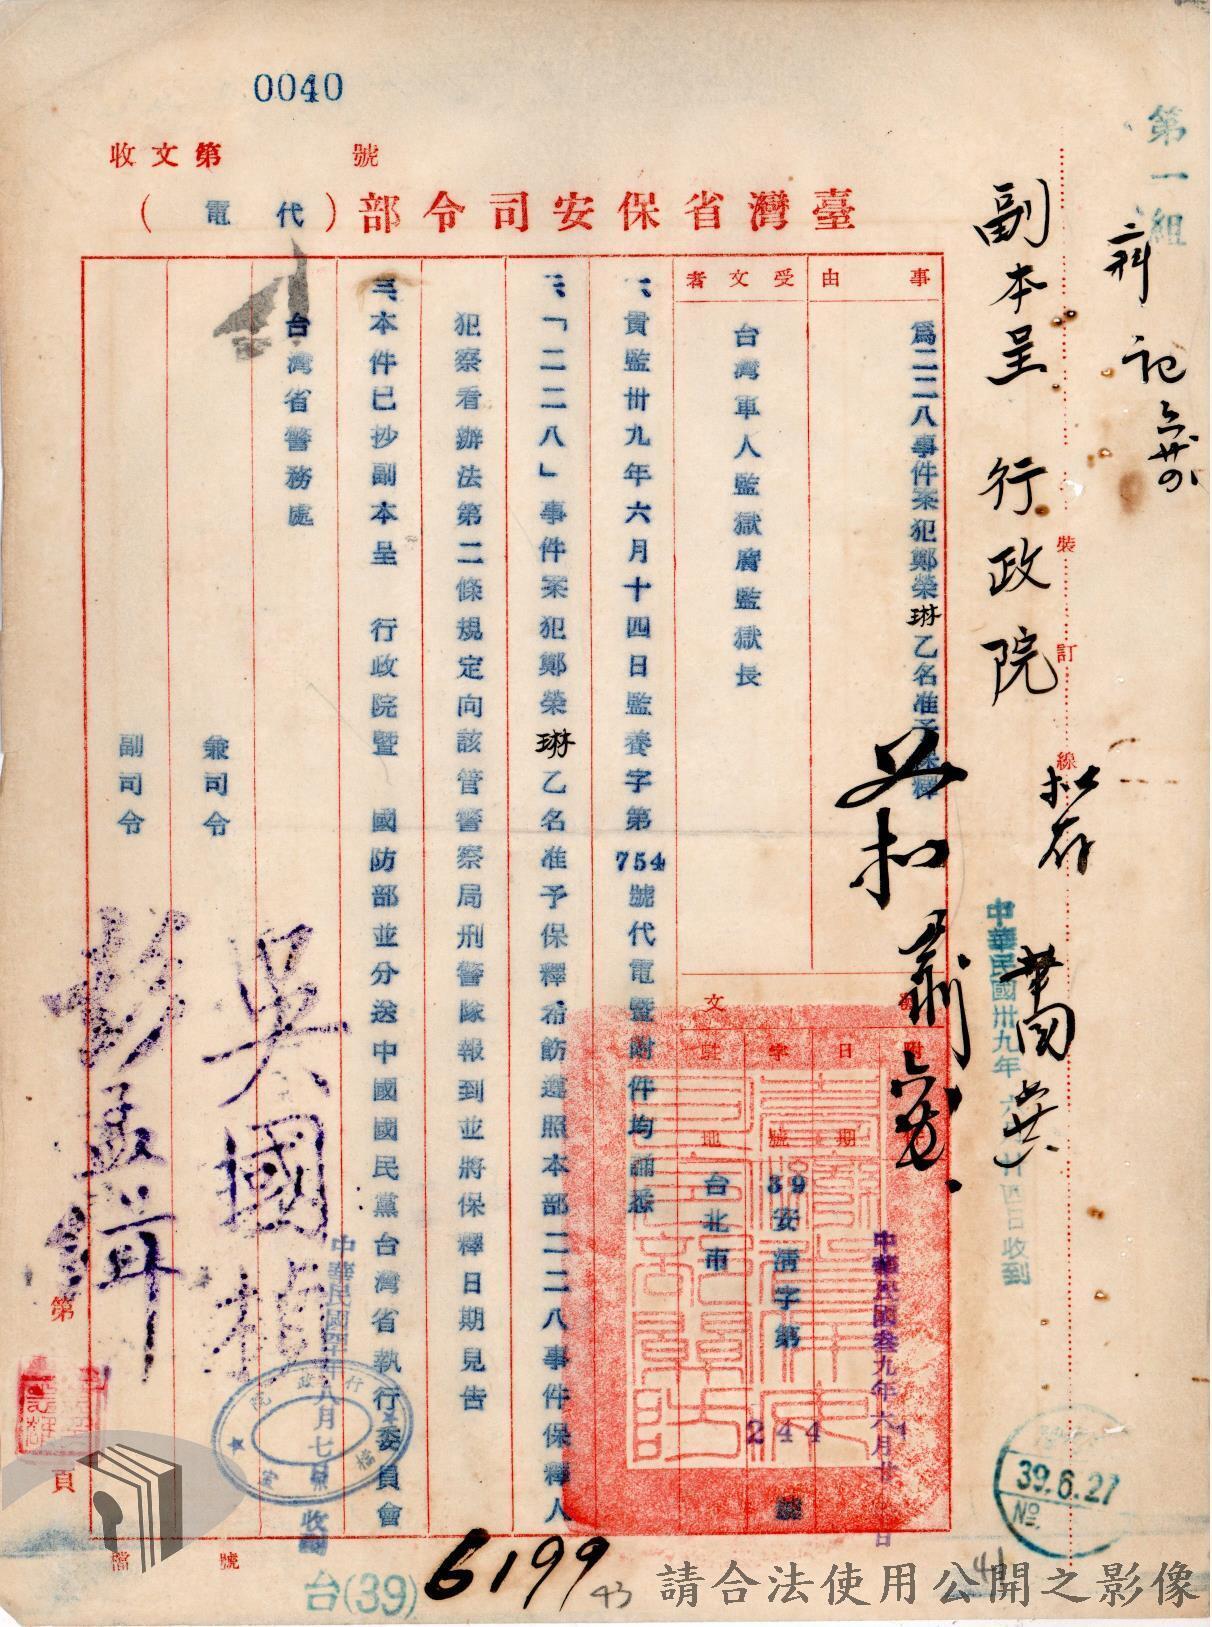 0040
收文第　　　號
臺灣省保安司令部（代電）
第一組
二科
副本呈　行政院
裝訂線
中華民國卅九年六月廿四日收到
事由
為二二八事件案犯鄭榮琳乙名准予保釋
受文者
台灣軍人監獄唐監獄長
附
日期
中華民國叁九年六月廿
日
字號
39安清字第
244
號
駐地
台北市
一、貴監卅九年六月十四日監養字第754號代電暨附件均誦悉
二、「二二八」事件案犯鄭榮琳乙名准予保釋希飭遵照本部二二八事件保釋人
犯察看辦法第二條規定向該管警察局刑警隊報到並將保釋日期見告
三、本件已抄副本呈　行政院暨　國防部並分送中國國民黨台灣省執行委員會
台灣省警務處
兼司令
吳國楨
副司令
彭孟緝
第
頁
檔　　　號
行政院
檔案室
39.6.27
No.
台(39)
6199
43
41
請合法使用公開之影像